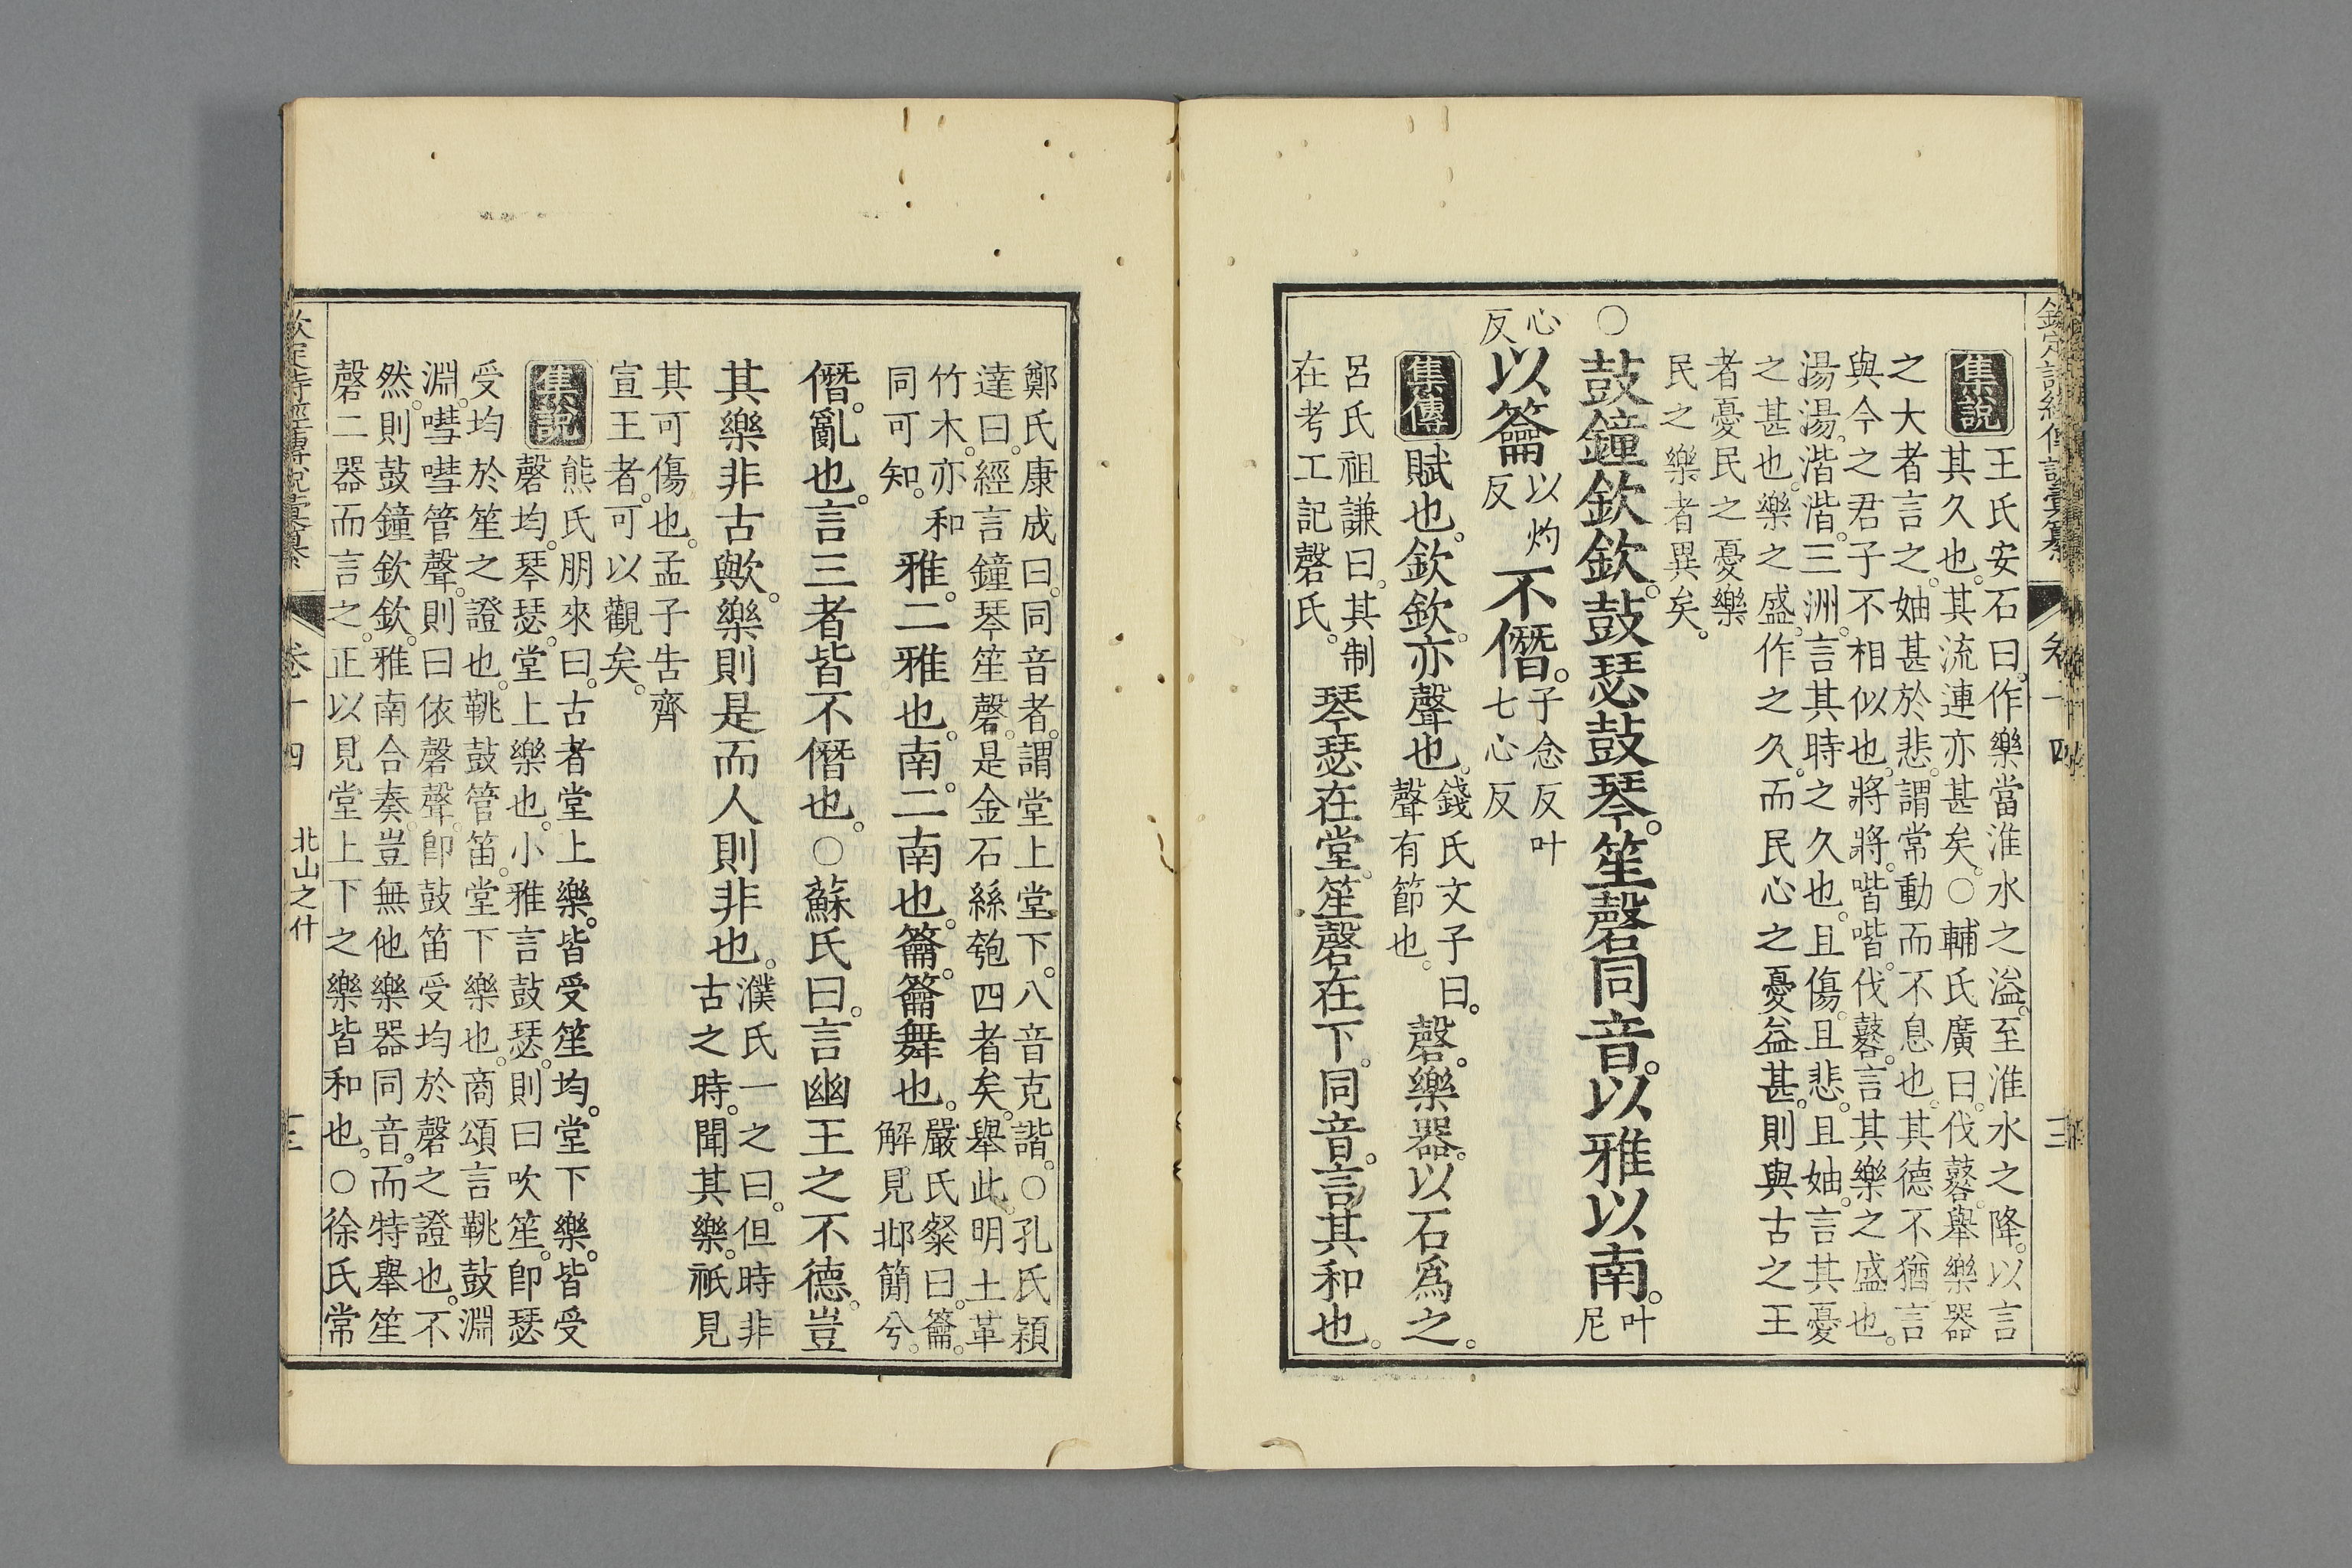 欽定詩經傳說彙纂 卷十四
集說 王氏安石曰。作樂當淮水之溢。至淮水之降。以言
其久也。其流連亦甚矣。○輔氏廣曰。伐鼛。舉樂器
之大者言之。妯甚於悲。謂常動而不息也。其德不猶。言
與今之君子不相似也。將將。喈喈。伐鼛。言其樂之盛也。
湯湯。湝湝。三洲。言其時之久也。且傷。且悲。且妯。言其憂
之甚也。樂之盛。作之久。而民心之憂益甚。則與古之王
者憂民之憂樂
民之樂者異矣。
○鼓鐘欽欽。鼓瑟鼓琴。笙磬同音。以雅以南。叶尼
心反以籥以灼反不僭。子念反叶七心反
集傳 賦也。欽欽。亦聲也。錢氏文子曰。聲有節也。磬。樂器。以石爲之。
呂氏祖謙曰。其制在考工記磬氏。琴瑟在堂。笙磬在下。同音。言其和也。
鄭氏康成曰。同音者。謂堂上堂下。八音克諧。○孔氏穎
達曰。經言鐘琴笙磬。是金石絲匏四者矣。舉此。明土革
竹木。亦和同可知。雅。二雅也。南。二南也。籥。籥舞也。嚴氏粲曰。籥。解見邶簡兮。
僭。亂也。言三者皆不僭也。○蘇氏曰。言幽王之不德。豈
其樂非古歟。樂則是而人則非也。濮氏一之曰。但時非古之時。聞其樂。祇見
其可傷也。孟子告齊
宣王者。可以觀矣。
集說 熊氏朋來曰。古者堂上樂。皆受笙均。堂下樂。皆受
磬均。琴瑟。堂上樂也。小雅言鼓瑟。則曰吹笙。卽瑟
受均於笙之證也。鞉鼓管笛。堂下樂也。商頌言鞉鼓淵
淵。嘒嘒管聲。則曰依磬聲。卽鼓笛受均於磬之證也。不
然。則鼓鐘欽欽。雅南合奏。豈無他樂器同音。而特舉笙
磬二器而言之。正以見堂上下之樂皆和也。○徐氏常
欽定詩經傳說彙纂 卷十四 北山之什